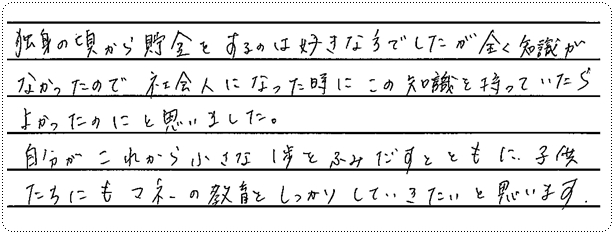 独身の頃から貯金をするのは好きな方でしたが全く知識が
なかったので社会人になった時にこの知識を持っていたら
よかったのにと思いました。
自分がこれから小さな1歩をふみだすとともに、子供
たちにもマネーの教育をしっかりしていきたいと思います.